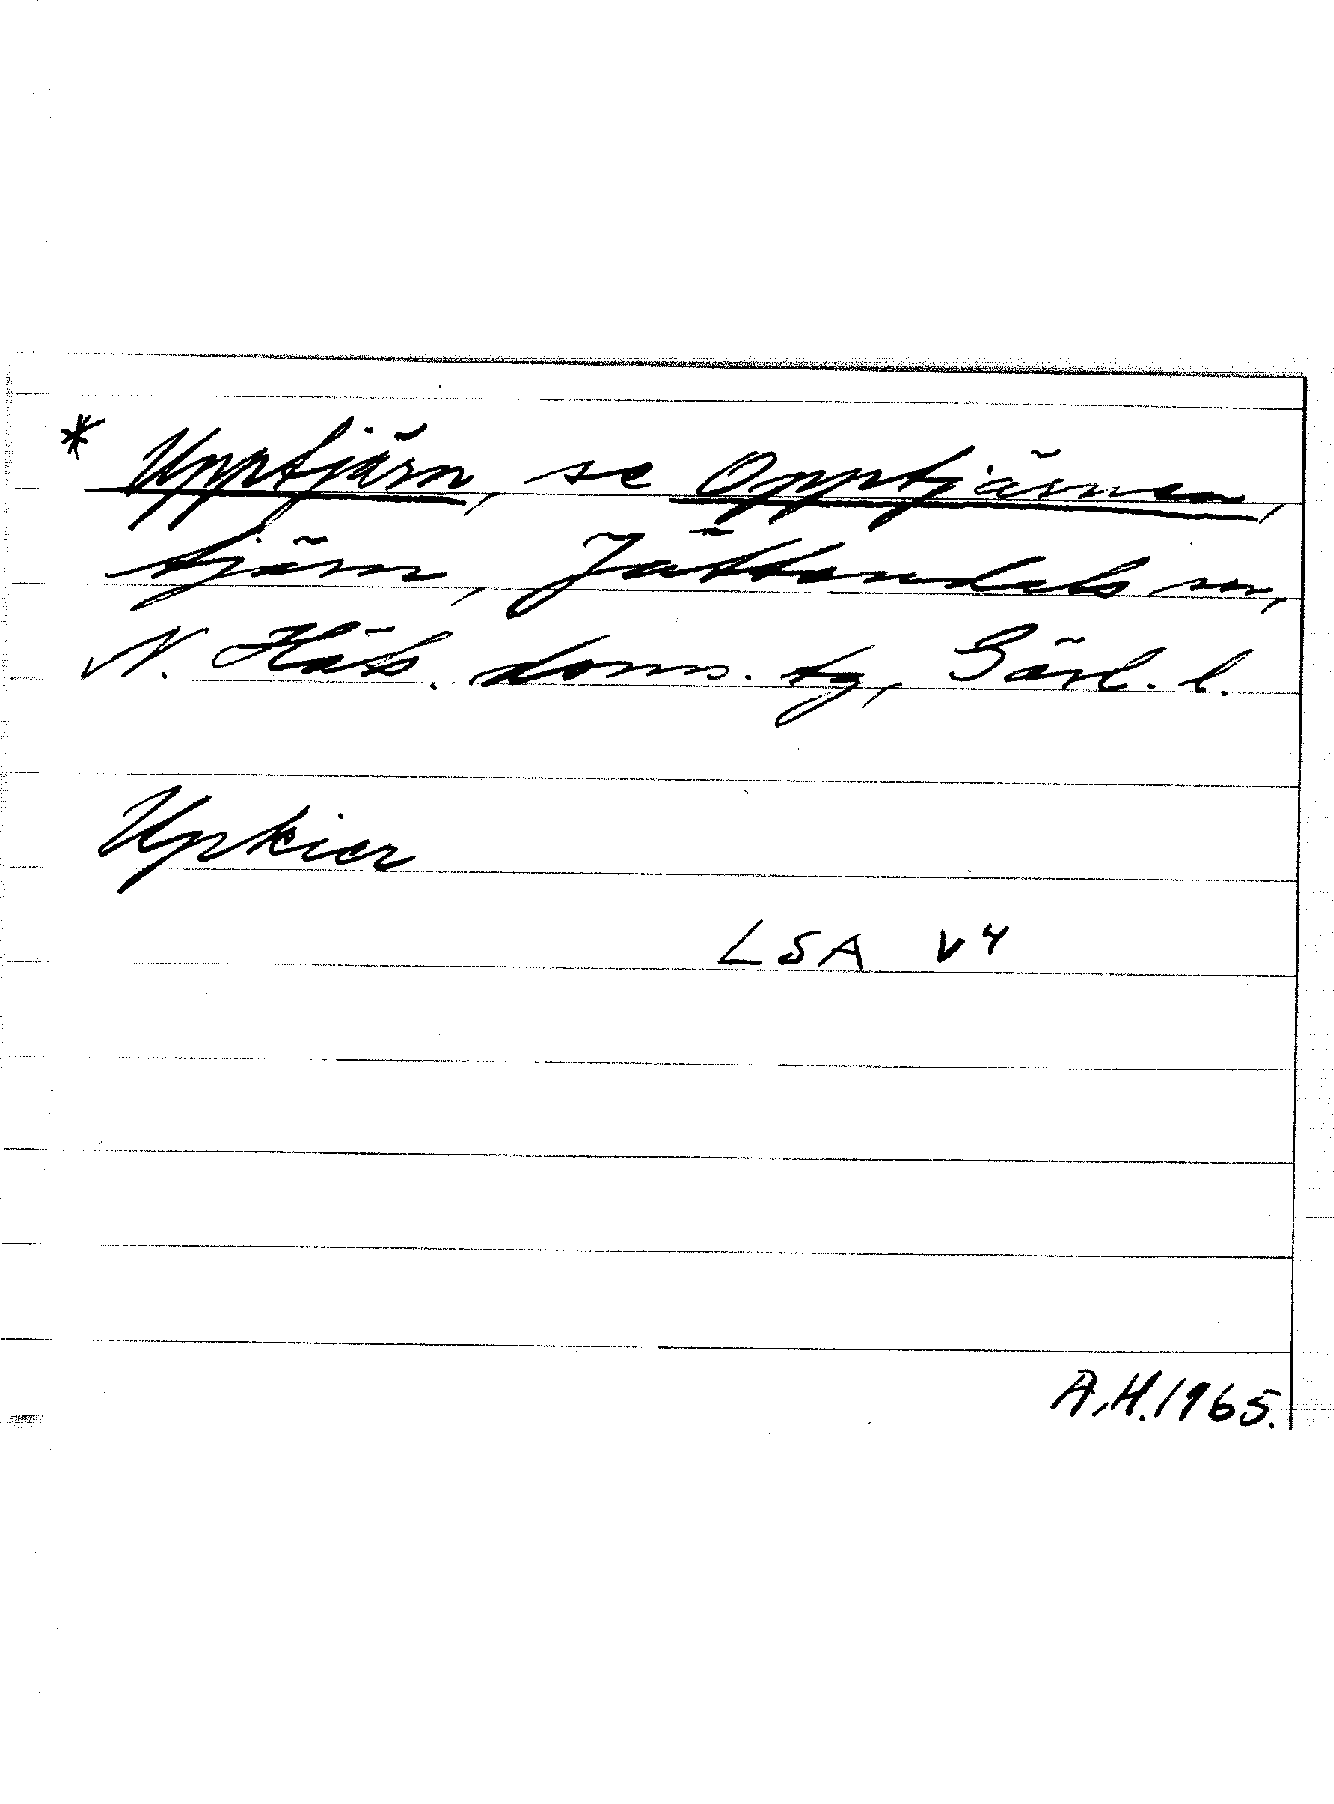 * Upptjärn, se Opptjärnen,
tjärn, Jättendals sn,
N. Häls. doms. tg, Gävl. l.
Upkier
LSA V4
A.H. 1965.